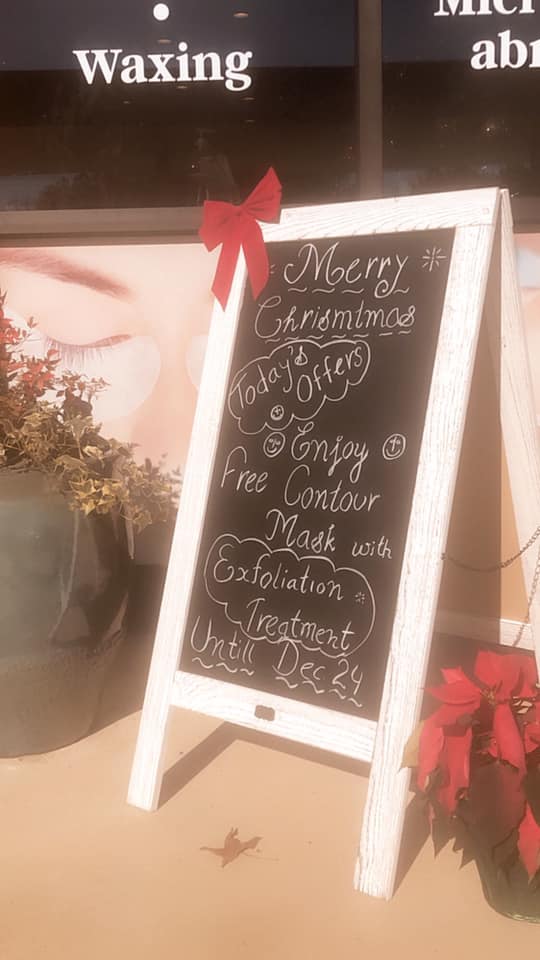 Waxing
Merry
Chrismtmas
Today's
Offers
Enjoy
Free Contour
Mask with
Exfoliation
Treatment
Untill Dec 24